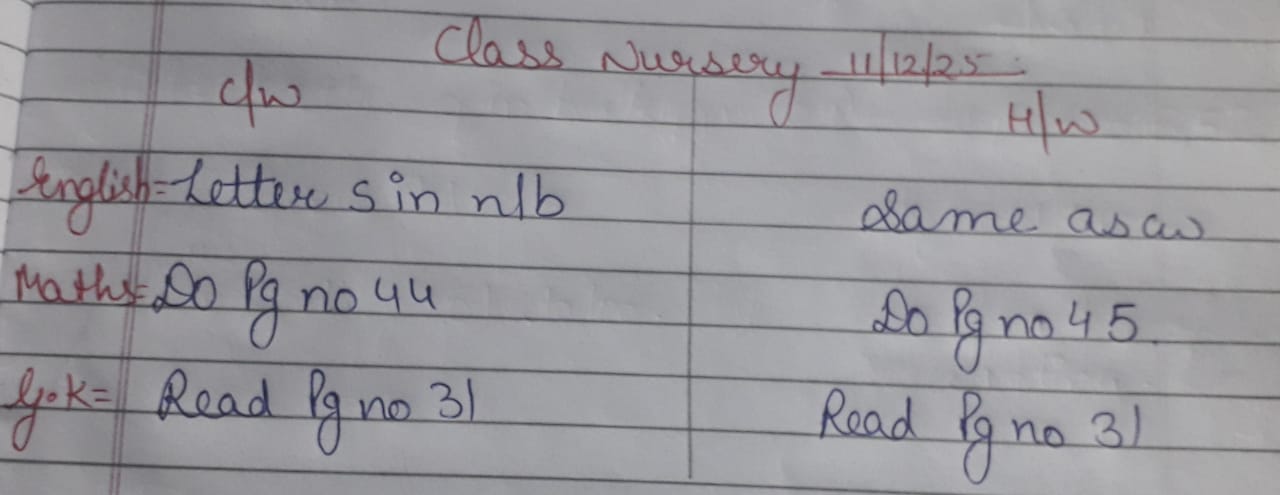 Class Nursery 11/12/25
C/W H/W
English = Letter S in n/b Same as cw
Maths = Do Pg no 44 Do Pg no 45
G.K = Read Pg no 31 Read Pg no 31